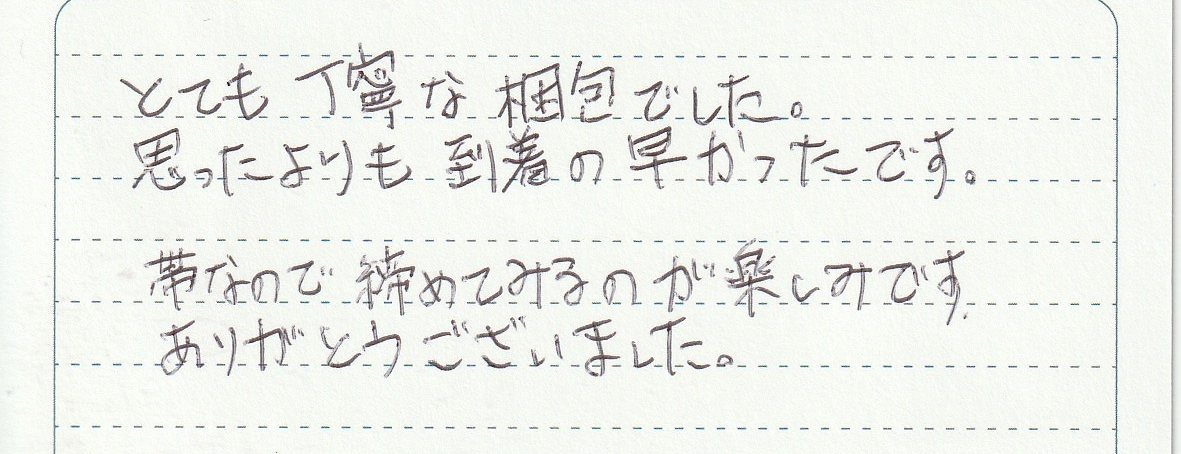 とても丁寧な梱包でした。
思ったよりも到着の早かったです。
帯なので締めてみるのが楽しみです.
ありがとうございました。